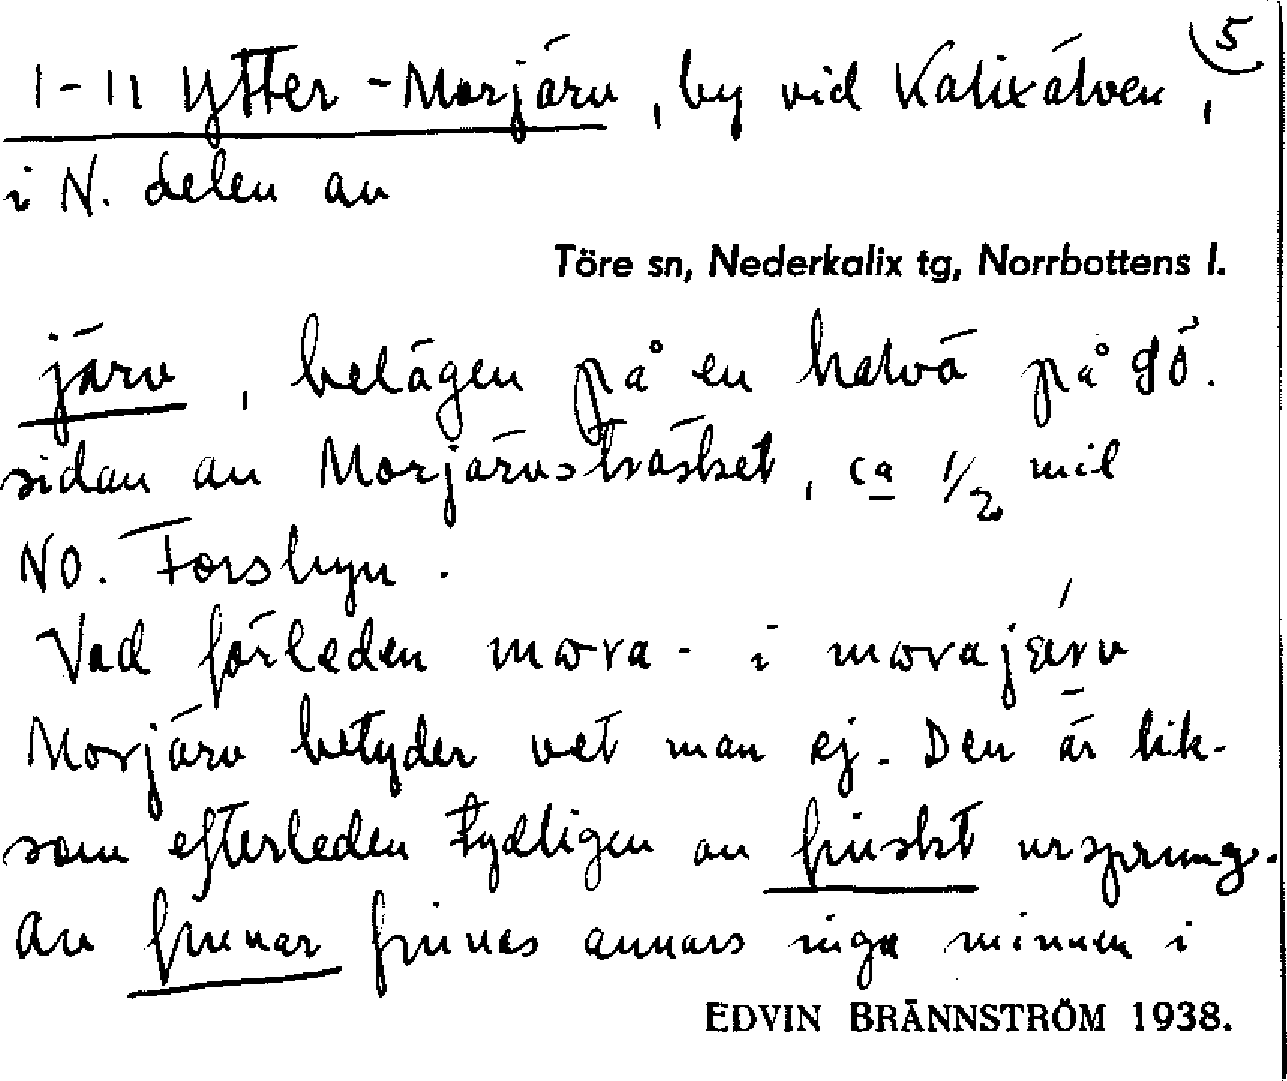 5
1-11 Ytter-Morjärv, by vid Kalixälven,
i N. delen av
Töre sn, Nederkalix tg, Norrbottens l.
järv, belägen på en halvö på sö.
sidan av Morjärvsträsket, ca 1/2 mil
NO. Forsbyn.
Vad förleden mora- i morajærv
Morjärv betyder vet man ej. Den är lik-
som efterleden tydligen av finskt ursprung.
Av finnar finnes annars inga minnen i
EDVIN BRÄNNSTRÖM 1938.